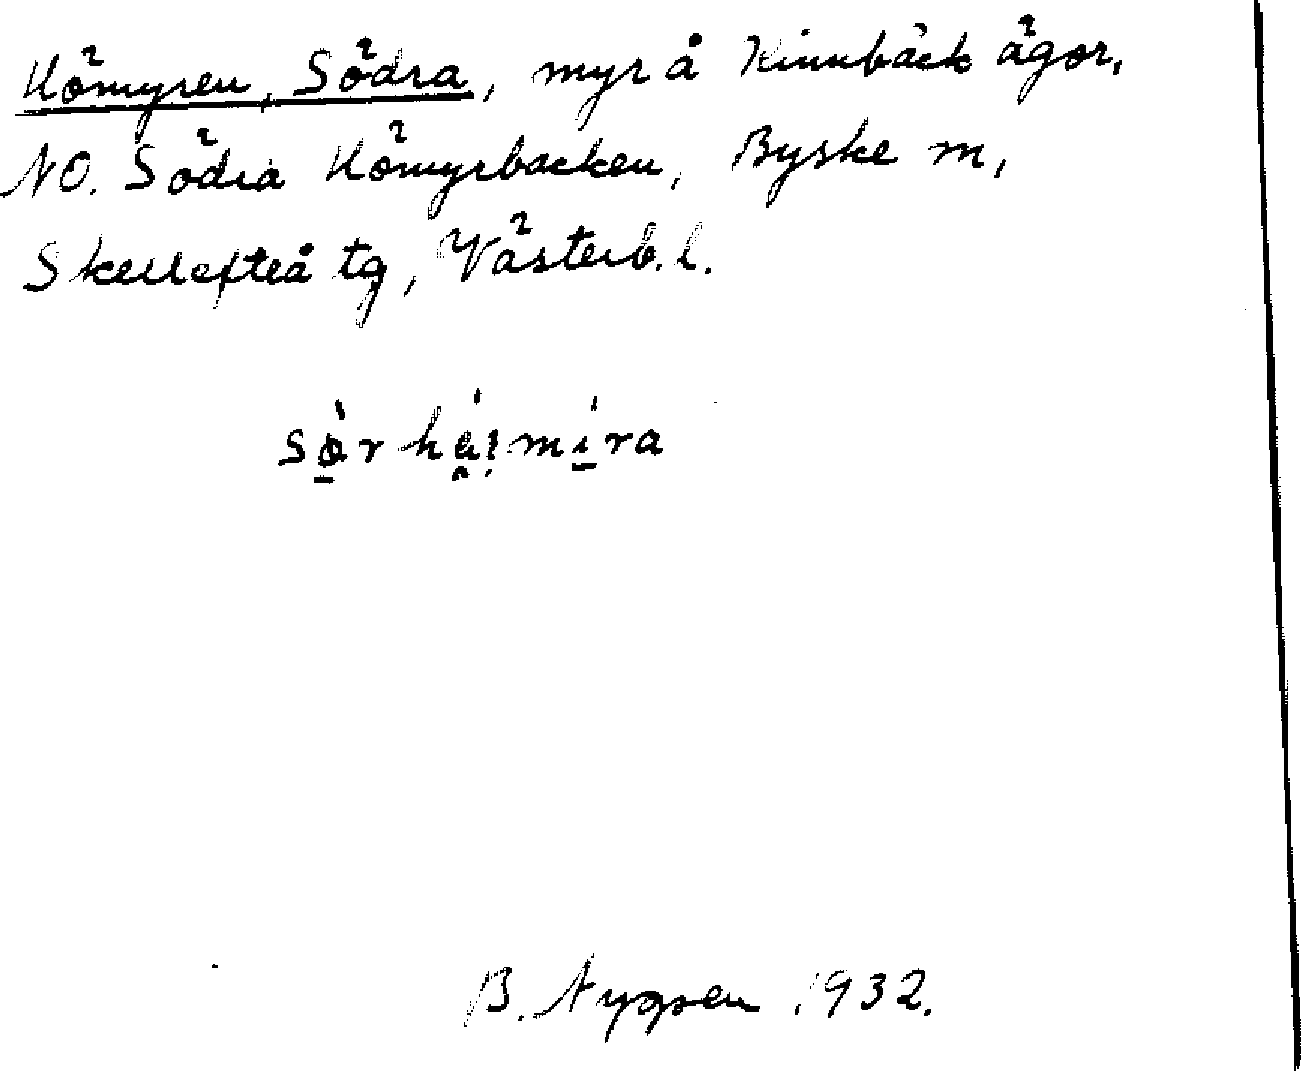 Hömyren, Södra, myr å Kinnbäck ägor,
NO. Södra Hömyrbacken, Byske sn,
Skellefteå tg, Västerb. l.
B. Nyggren 1932.